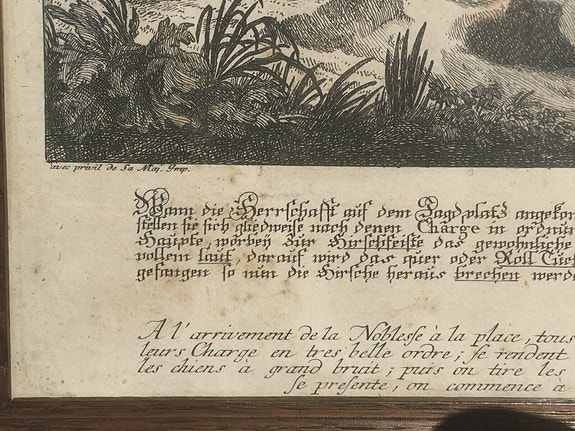 avec privil de Sa Maj. Imp.
Wann die Herrschafft auf dem Jagdplatz angekom
stellen sie sich gliedweise nach denen Charge in ordnun
Haupte, worbey zur Hirschfeiste das gewohnliche
vollem lauf, darauf wird das quer oder Roll Tuch
gefangen so nun die Hirsche heraus brechen werde
A l'arrivement de la Noblesse à la place, tous
leurs Charge en tres belle ordre; se rendent
les chiens à grand bruit; puis on tire les
se presente, on commence à